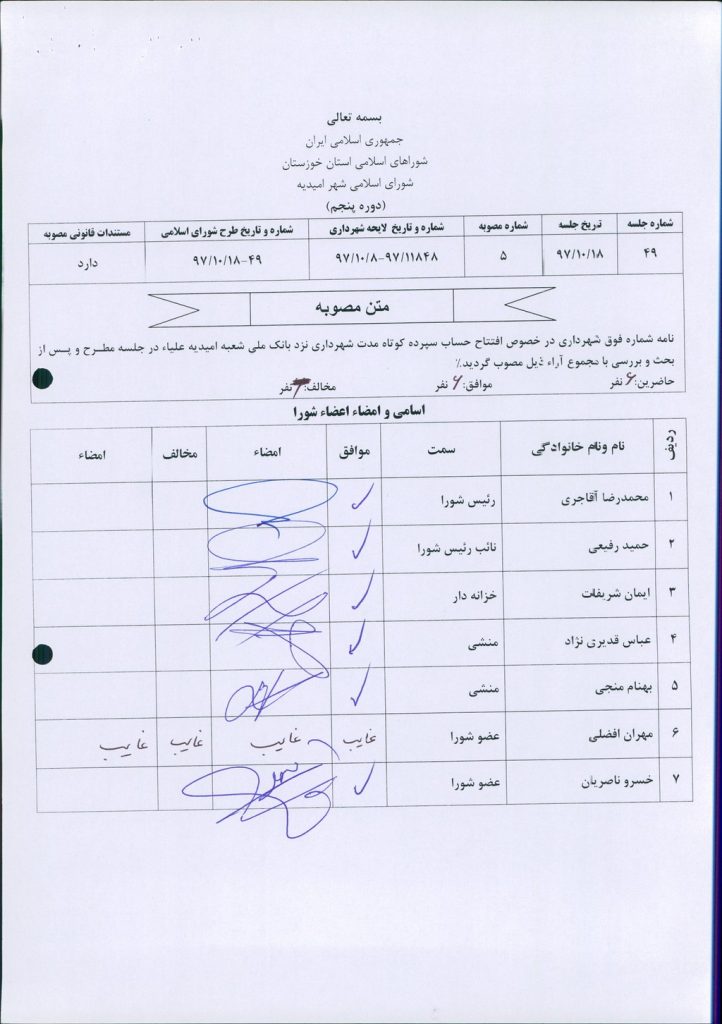 بسمه تعالی
جمهوری اسلامی ایران
شوراهای اسلامی استان خوزستان
شورای اسلامی شهر امیدیه
(دوره پنجم)
شماره جلسه تاریخ جلسه شماره مصوبه شماره و تاریخ لایحه شهرداری شماره و تاریخ طرح شورای اسلامی مستندات قانونی مصوبه
۴۹ ۹۷/۱۰/۱۸ ۵ ۹۷/۱۰/۸-۹۷/۱۱۸۴۸ ۹۷/۱۰/۱۸-۴۹ دارد
متن مصوبه
نامه شماره فوق شهرداری در خصوص افتتاح حساب سپرده کوتاه مدت شهرداری نزد بانک ملی شعبه امیدیه علیاء در جلسه مطـرح و پـس از
بحث و بررسی با مجموع آراء ذیل مصوب گردید.٪
حاضرین: ۶ نفر موافق: ۶ نفر مخالف: نفر
اسامی و امضاء اعضاء شورا
ردیف نام ونام خانوادگی سمت موافق امضاء مخالف امضاء
۱ محمدرضا آقاجری رئیس شورا ✓
۲ حمید رفیعی نائب رئیس شورا ✓
۳ ایمان شریفات خزانه دار ✓
۴ عباس قدیری نژاد منشی ✓
۵ بهنام منجی منشی ✓
۶ مهران افضلی عضو شورا غایب غایب غایب غایب
۷ خسرو ناصریان عضو شورا ✓